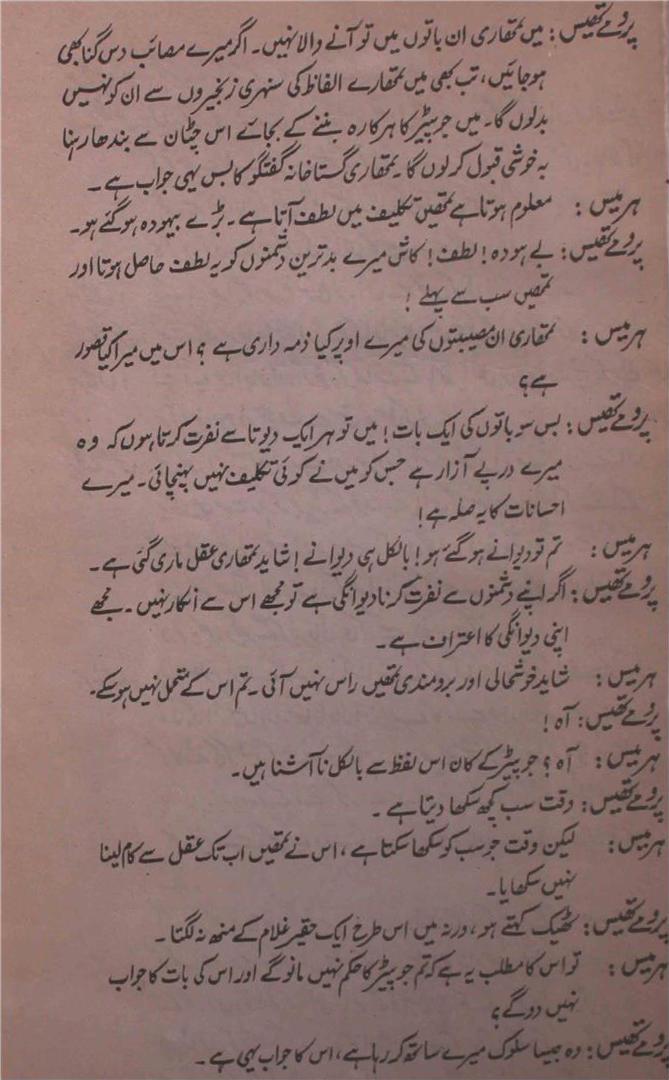 پرومے تھیس: میں تمھاری ان باتوں میں تو آنے والا نہیں۔ اگر میرے مصائب دس گنا بھی
ہوجائیں، تب بھی میں تمھارے الفاظ کی سنہری زنجیروں سے ان کو نہیں
بدلوں گا۔ میں جوپیٹر کا ہرکارہ بننے کے بجائے اس چٹان سے بندھا رہنا
بہ خوشی قبول کرلوں گا۔ تمھاری گستاخانہ گفتگو کا بس یہی جواب ہے۔
ہرمیس: معلوم ہوتا ہے تمھیں تکلیف میں لطف آتا ہے۔ بڑے بیہودہ ہوگئے ہو۔
پرومے تھیس: بے ہودہ! لطف! کاش میرے بدترین دشمنوں کو یہ لطف حاصل ہوتا اور
تمھیں سب سے پہلے!
ہرمیس: تمھاری ان مصیبتوں کی میرے اوپر کیا ذمہ داری ہے؟ اس میں میرا کیا قصور
ہے؟
پرومے تھیس: بس سو باتوں کی ایک بات! میں تو ہر ایک دیوتا سے نفرت کرتا ہوں کہ وہ
میرے درپے آزار ہے جس کو میں نے کوئی تکلیف نہیں پہنچائی۔ میرے
احسانات کا یہ صلہ ہے!
ہرمیس: تم تو دیوانے ہوگئے ہو! بالکل ہی دیوانے! شاید تمھاری عقل ماری گئی ہے۔
پرومے تھیس: اگر اپنے دشمنوں سے نفرت کرنا دیوانگی ہے تو مجھے اس سے انکار نہیں۔ مجھے
اپنی دیوانگی کا اعتراف ہے۔
ہرمیس: شاید خوشحالی اور برومندی تمھیں راس نہیں آئی۔ تم اس کے متحمل نہیں ہوسکے۔
پرومے تھیس: آہ!
ہرمیس: آہ؟ جوپیٹر کے کان اس لفظ سے بالکل ناآشنا ہیں۔
پرومے تھیس: وقت سب کچھ سکھا دیتا ہے۔
ہرمیس: لیکن وقت جو سب کو سکھا سکتا ہے، اس نے تمھیں اب تک عقل سے کام لینا
نہیں سکھایا۔
پرومے تھیس: ٹھیک کہتے ہو، ورنہ میں اس طرح ایک حقیر غلام کے منھ نہ لگتا۔
ہرمیس: تو اس کا مطلب یہ ہے کہ تم جوپیٹر کا حکم نہیں مانوگے اور اس کی بات کا جواب
نہیں دوگے؟
پرومے تھیس: وہ جیسا سلوک میرے ساتھ کر رہا ہے، اس کا جواب یہی ہے۔